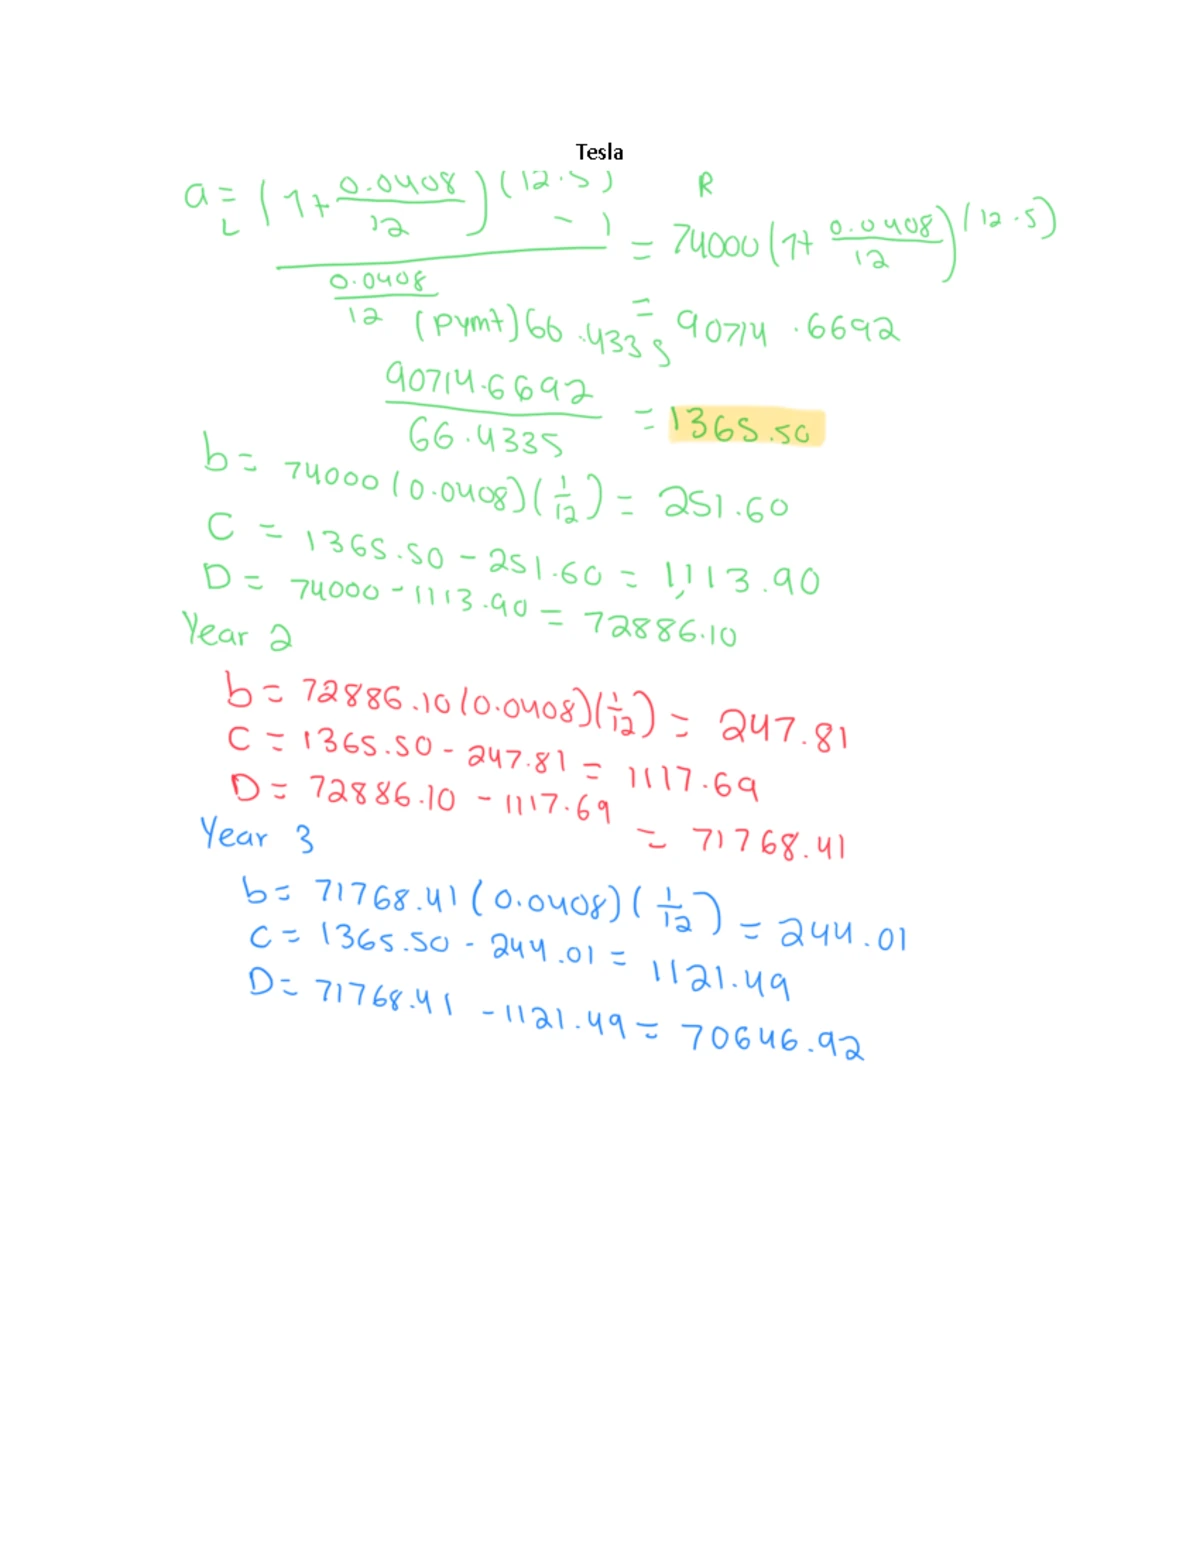 Tesla
a = (1+ 0.0408/12)^(12·5) - 1 R
L
0.0408/12 = 74000(1+ 0.0408/12)^(12·5)
(pymt) 66.4335 = 90714.6692
90714.6692/66.4335 = 1365.50
b = 74000(0.0408)(1/12) = 251.60
C = 1365.50 - 251.60 = 1,113.90
D = 74000 - 1113.90 = 72886.10
Year 2
b = 72886.10(0.0408)(1/12) = 247.81
C = 1365.50 - 247.81 = 1117.69
D = 72886.10 - 1117.69 = 71768.41
Year 3
b = 71768.41(0.0408)(1/12) = 244.01
C = 1365.50 - 244.01 = 1121.49
D = 71768.41 - 1121.49 = 70646.92